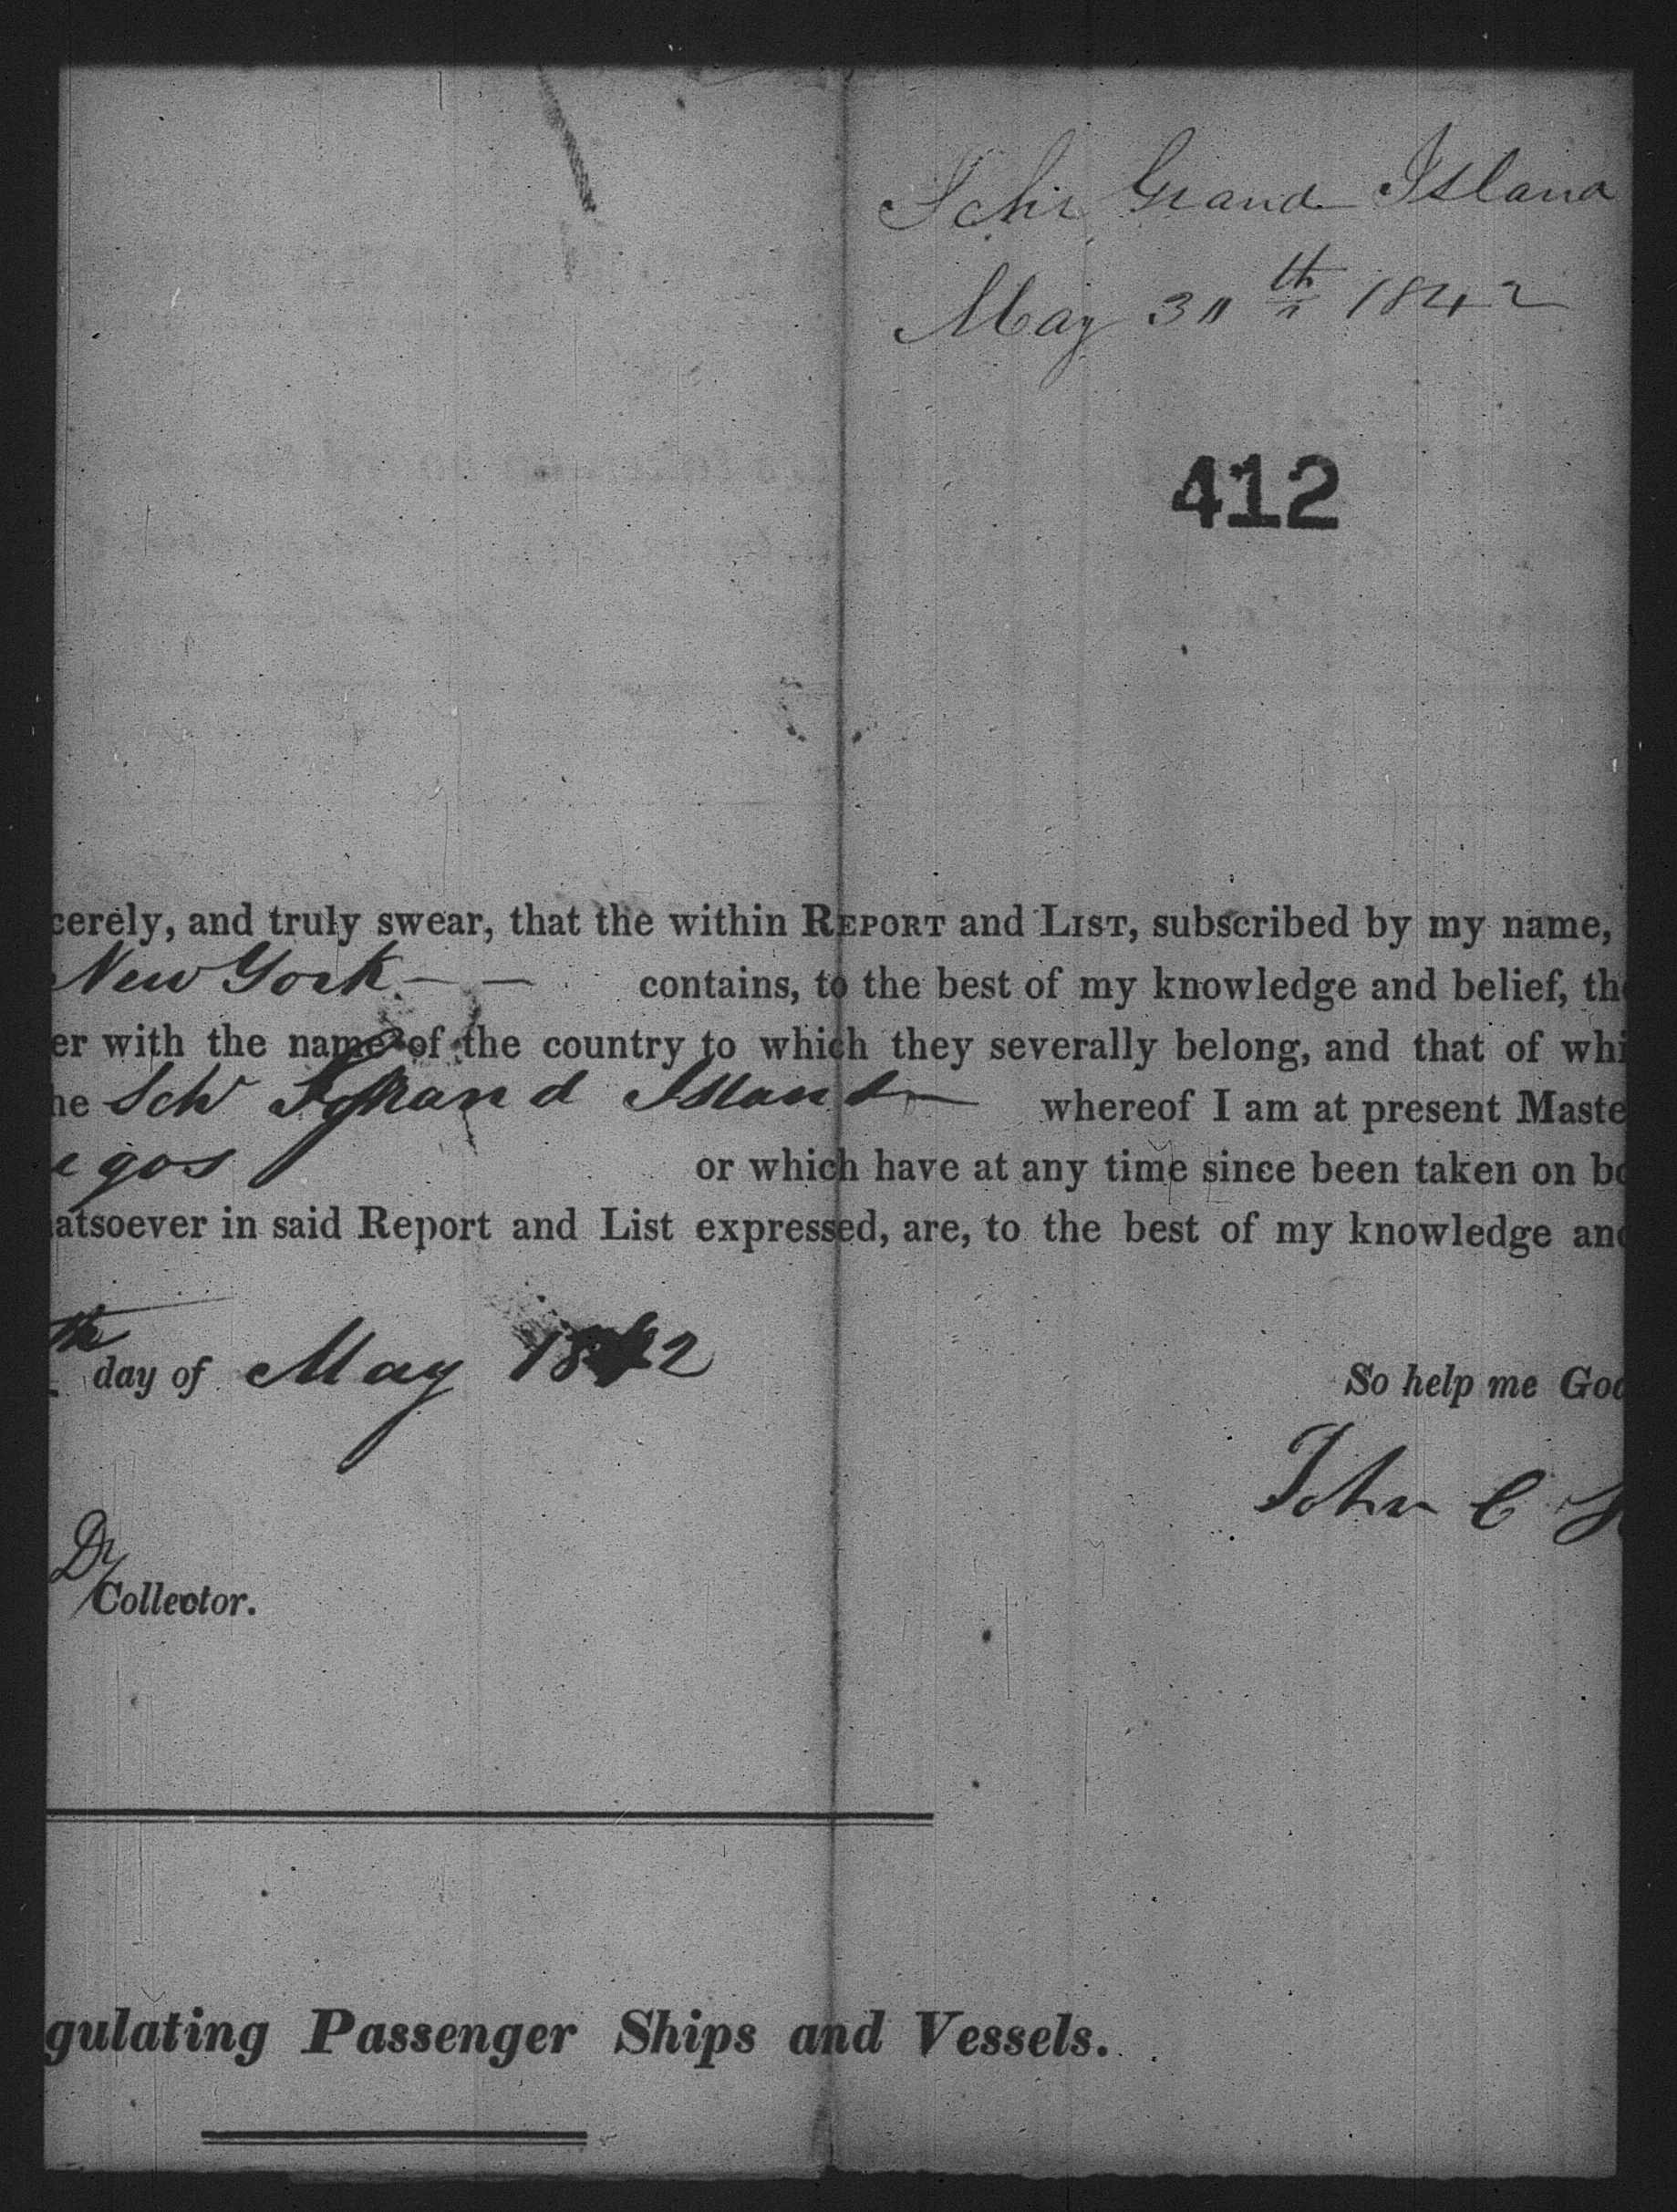 Schr Grand Island
May 30th 1842
412
cerely, and truly swear, that the within REPORT and LIST, subscribed by my name,
New York contains, to the best of my knowledge and belief, the
er with the name of the country to which they severally belong, and that of whi
he Schr Grand Island whereof I am at present Maste
egos or which have at any time since been taken on bo
atsoever in said Report and List expressed, are, to the best of my knowledge and
th day of May 1842
So help me God
John C
Dy
Collector.
gulating Passenger Ships and Vessels.